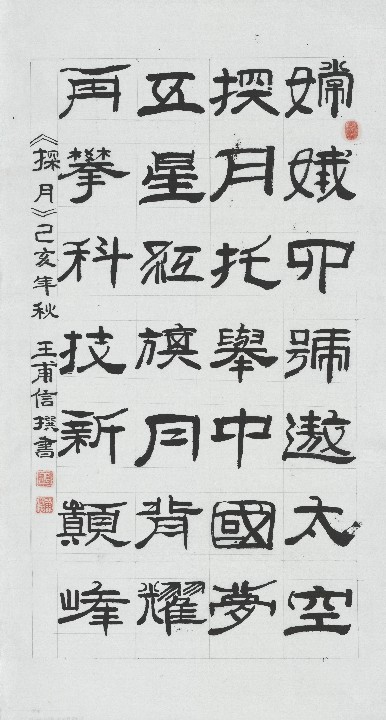 嫦娥四號遨太空
探月托舉中國夢
五星紅旗月背耀
再攀科技新顛峰
《探月》己亥年秋 王甫信撰書